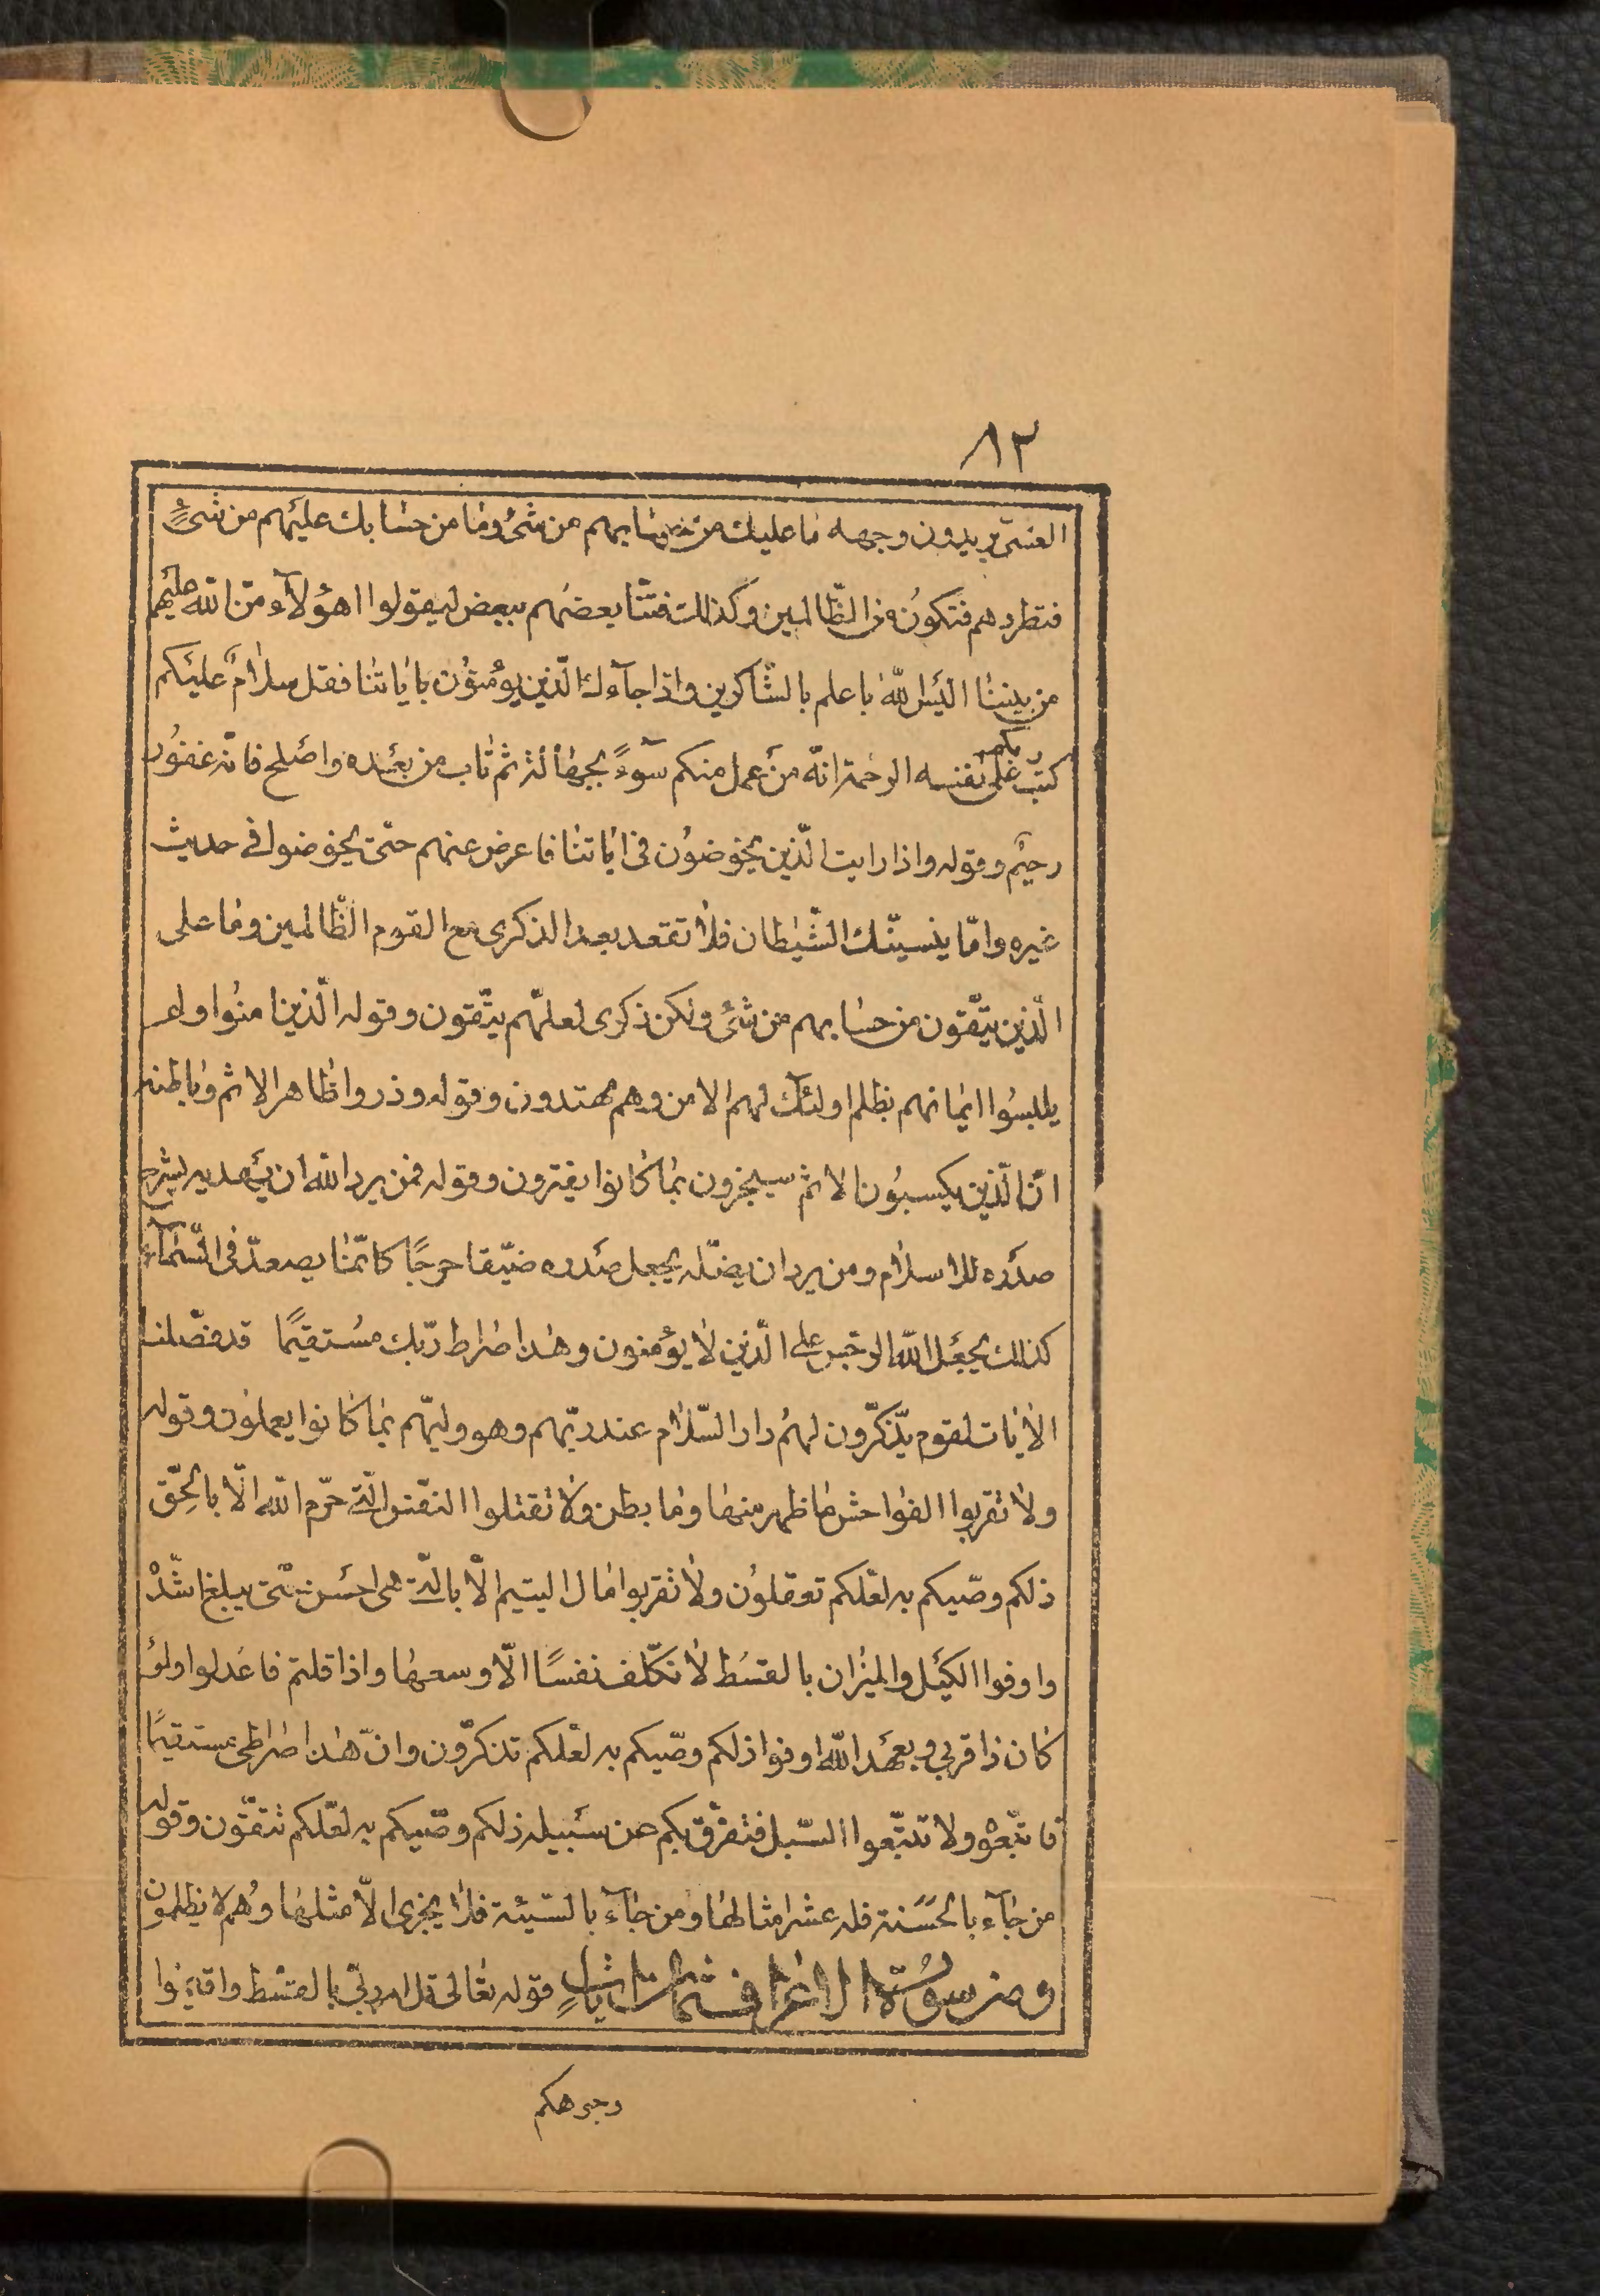 ٨٢
العشىّ يريدون وجهه ما عليك من حسابهم من شىء وما من حسابك عليهم من شىءٍ
فتطردهم فتكون من الظّالمين وكذلك فتنّا بعضهم ببعض ليقولوا اهؤلآء منّ الله عليهم
من بيننا اليس الله باعلم بالشّاكرين واذا جآءك الّذين يؤمنون باياتنا فقل سلامٌ عليكم
كتب ربكم على نفسه الرحمة انّه من عمل منكم سوءً بجهالة ثم تاب من بعده واصلح فانّه غفور
رحيم وقوله واذا رايت الّذين يخوضون فى اياتنا فاعرض عنهم حتّى يخوضوا فى حديث
غيره وامّا ينسينّك الشّيطان فلا تقعد بعد الذكرى مع القوم الظّالمين وما على
الّذين يتّقون من حسابهم من شىء ولكن ذكرى لعلّهم يتّقون وقوله الّذين امنوا ولم
يلبسوا ايمانهم بظلم اولئك لهم الامن وهم مهتدون وقوله وذروا ظاهر الاثم وباطنه
انّ الّذين يكسبون الاثم سيجزون بما كانوا يقترفون وقوله فمن يرد الله ان يهديه يشرح
صدره للاسلام ومن يرد ان يضلّه يجعل صدره ضيّقا حرجًا كانّما يصعدّ فى السّمآء
كذلك يجعل الله الرجس على الّذين لا يؤمنون وهذا صراط ربّك مستقيمًا قد فصّلنا
الأيات لقوم يذّكرّون لهم دار السّلام عند ربّهم وهو وليّهم بما كانوا يعملون وقوله
ولا تقربوا الفواحش ما ظهر منها وما بطن ولا تقتلوا النفّس الّتى حرّم الله الّا بالحِقّ
ذلكم وصّيكم به لعلّكم تعقلون ولا تقربوا مال اليتيم الّا بالّتى هى احسن حتّى يبلغ اشدّه
واوفوا الكيل والميزان بالقسط لا نكلّف نفسًا الّا وسعها واذا قلتم فاعدلوا ولو
كان ذا قربى وبعهد الله اوفوا ذلكم وصّيكم به لعلّكم تذكرّون وانّ هذا صراطى مستقيمًا
فاتّبعوه ولا تتبّعوا السّبل فتفرّق بكم عن سبيله ذلكم وصّيكم به لعلّكم تتقّون وقوله
من جآء بالحسنة فله عشر امثالها ومن جآء بالسّيئة فلا يجزى الّا مثلها وهم لا يظلمون
ومن سورة الاعراف ثمان ايات قوله تعالى قل امر ربّى بالقسط واقيموا
وجوهكم